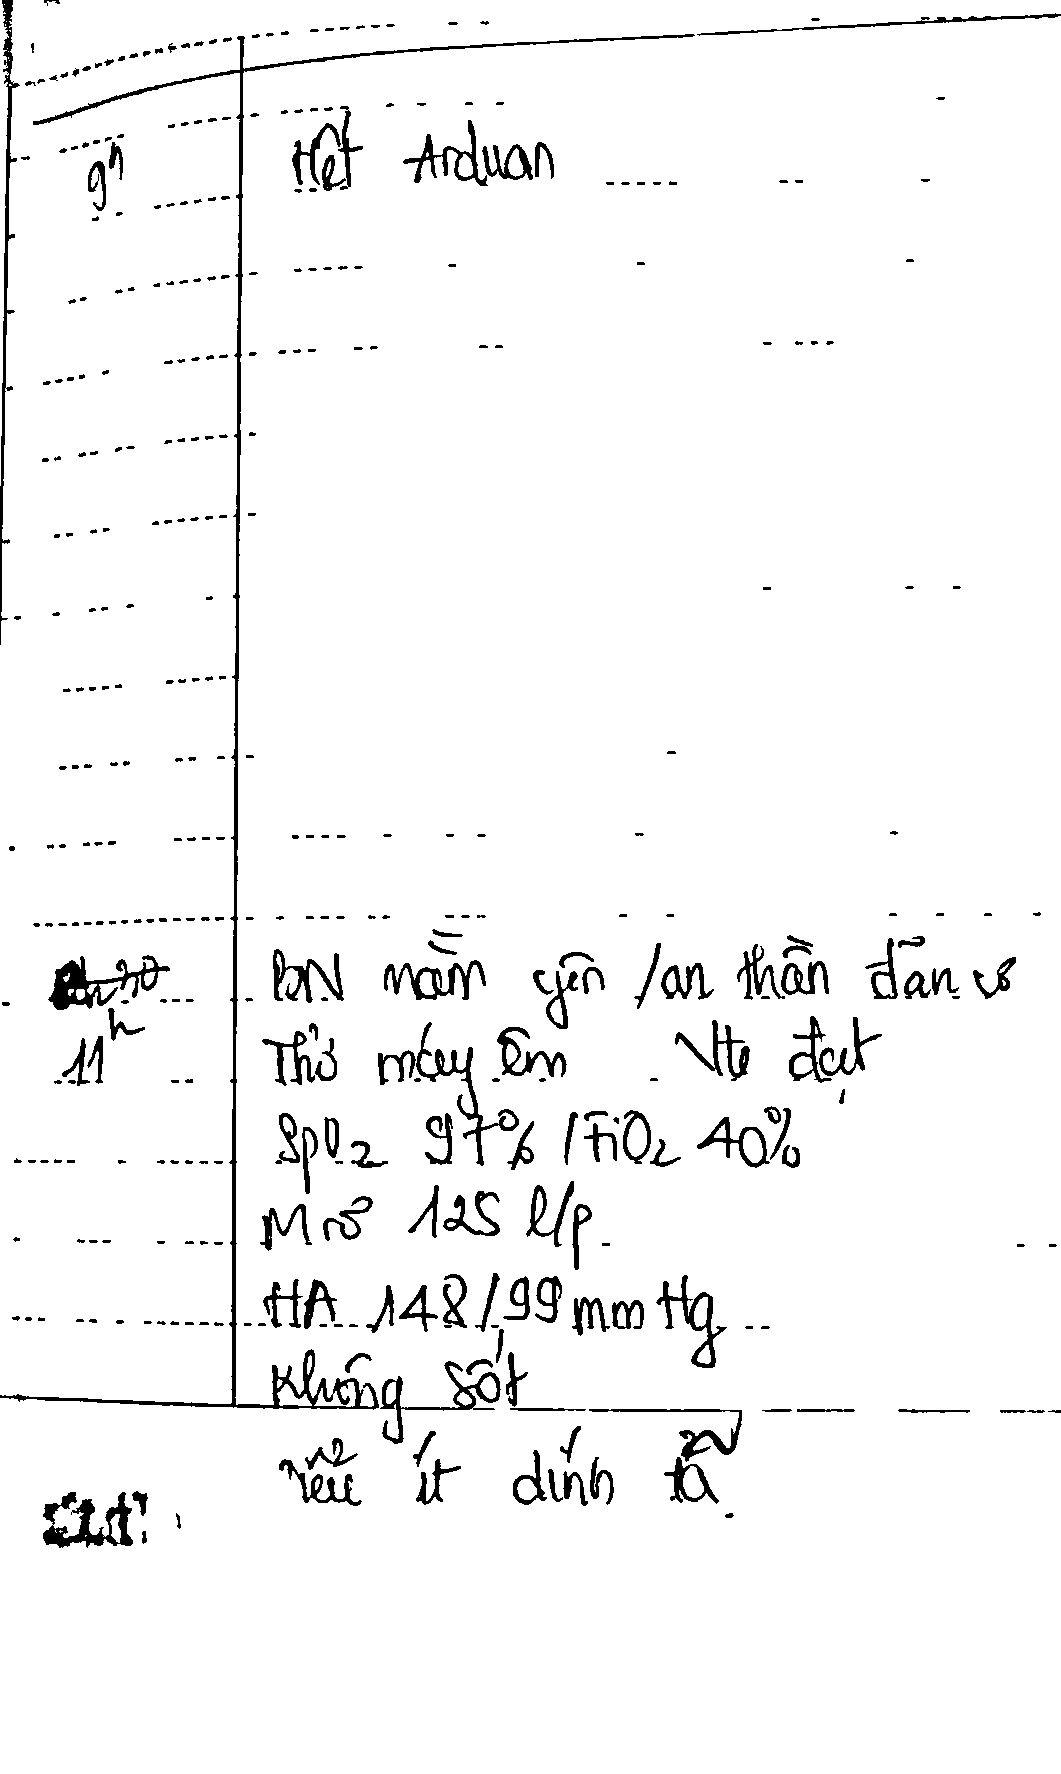 9h Hết Arduan
BN nằm yên /an thần dãn cơ
11h Thở máy êm Vte đạt
SpO2 97% /FiO2 40%
M rõ 125 l/p.
HA 148/99 mmHg
Không sốt
tiểu ít dính tã.